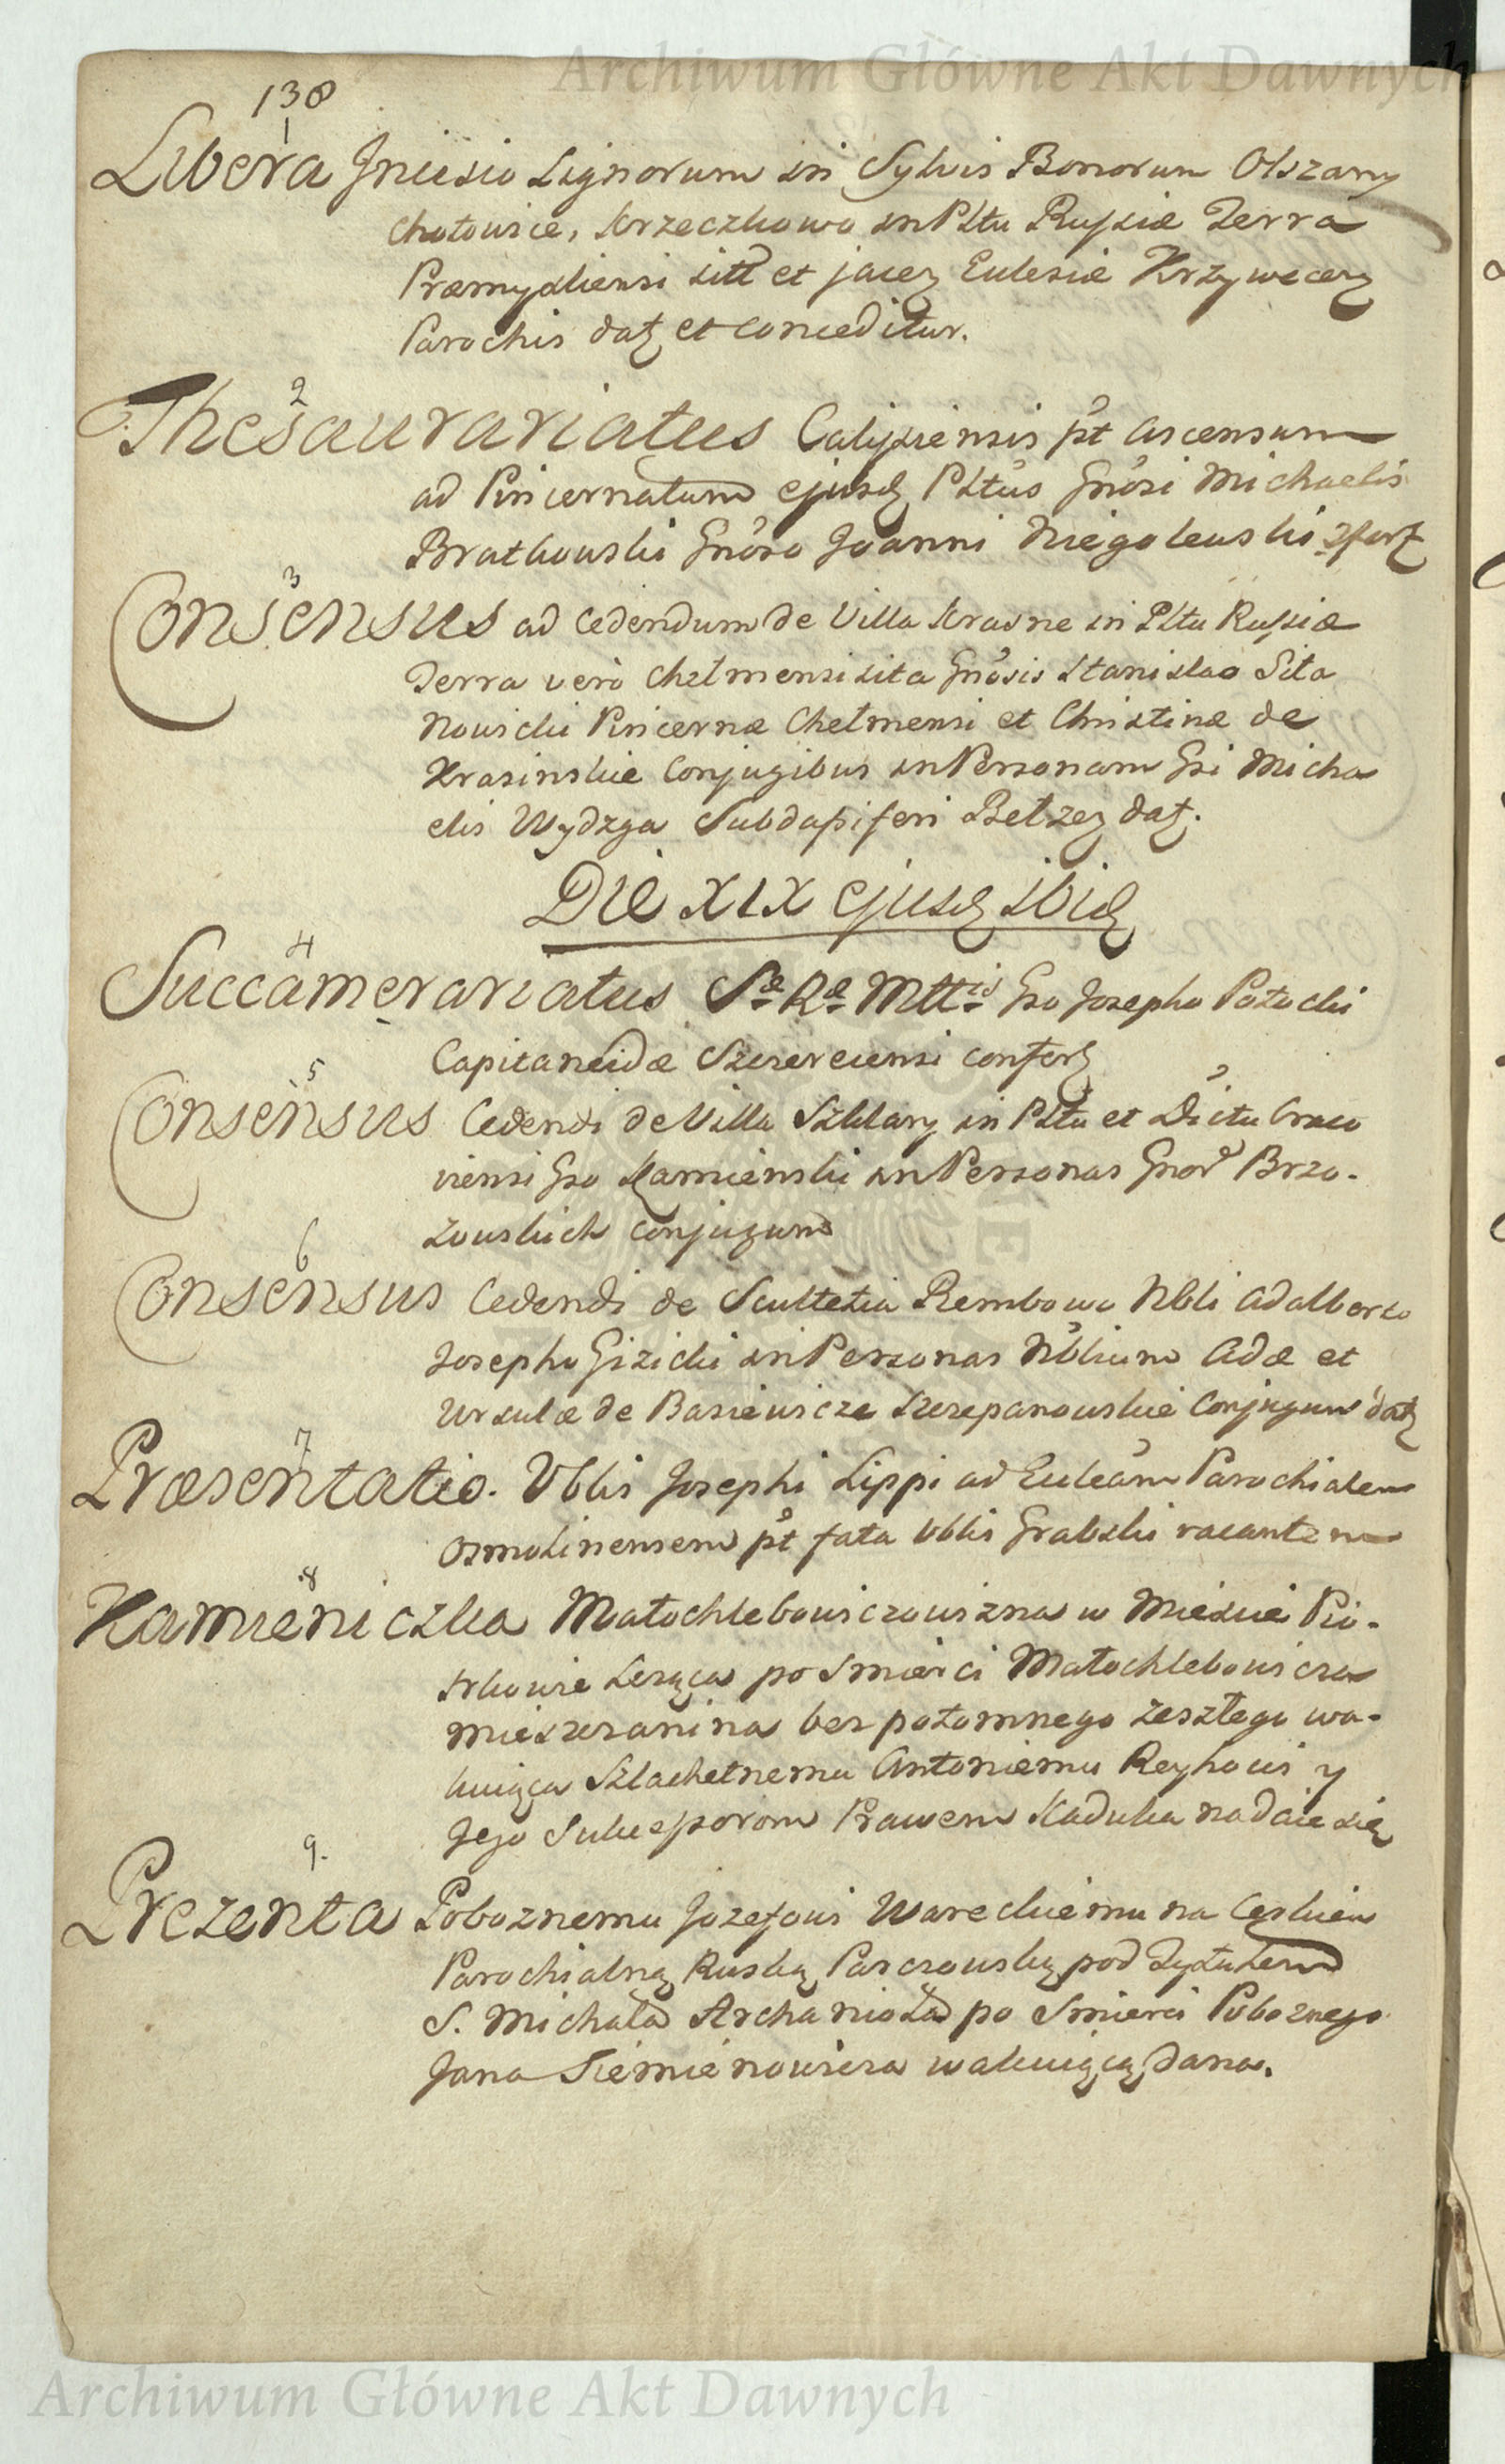 Archiwum Główne Akt Dawnych
138
1
Libera Incisio Lignorum in Sylvis Bonorum Olszany
Chołowice, Krzeczkowo in Pltu Russiæ Terra
Præmysliensi sitt et jacen Ecclesiæ Krzywecen
Parochis datz et conceditur.
2
Thesaurariatus Calissiensis pt Ascensum
ad Pincernatum ejusd Pltus Gnosi Michaelis
Bratkowski Gnoso Joanni Niegolewski 
3
Consensus ad Cedendum de Villa Krasne in Pltu Russiæ
Terra verò Chelmensi sita Gnosis Stanislao Sila
Nowicki Pincernæ Chelmensi et Christinæ de
Krasinskie Conjugibus in Personam Gsi Micha
elis Wydzga Subdapiferi Belzen datz.
Die XIX ejusd ibid
4
Succamerariatus Sæ Ræ Mttis Gso Josepho Potocki
Capitaneidæ Szczerecensi confertz
5
Consensus Cedendi de Villa Szklary in Pltu et Dictu Craco
viensi Gso Kamienski in Personas Gnor Brzo-
zowskich Conjugum
6
Consensus Cedendi de Scultetia Rembowo Nbli Adalberto
Josepho Gizicki in Personas Nblium Adæ et
Ursulæ de Basiewicze Szczepanowskie Conjugum datz
7
Præsentatio. Vblis Josephi Lippi ad Eccleam Parochialem
Osmolinensem pt fata Vblis Grabski vacantem
8
Kamieniczka Małochlebowiczowizna w Miescie Pio-
trkowie Leząca po Smierci Małochlebowicza
Mieszczanina bez potomnego zeszłego wa-
kuiąca Szlachetnemu Antoniemu Reyhowi y
Jego Sukcessorom Prawem Kaduka nadaie się
9.
Prezenta Poboznemu Jozefowi Wareckiemu na Cerkiew
Parochialną Ruską Parczowską pod Tytułem
S. Michała Archanioła po Smierci Poboznego
Jana Siemienowicza wakuiącą dana.
Archiwum Główne Akt Dawnych